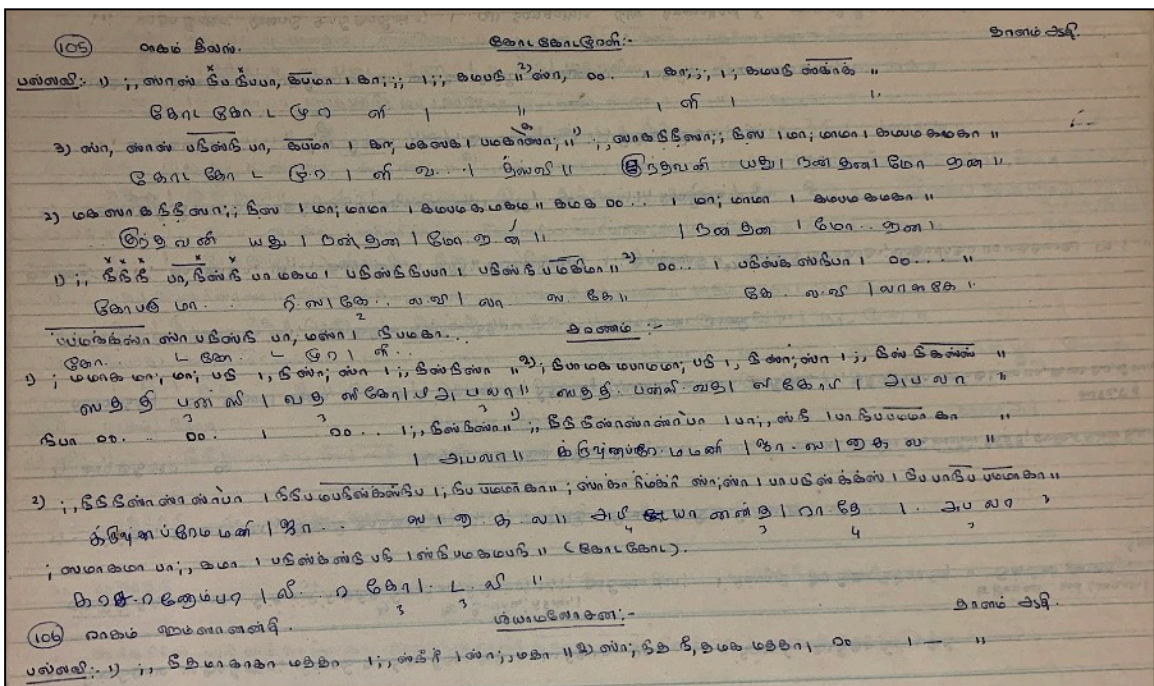 (105) ராகம் திலங். கோட கோடமுரளி:- தாளம் ஆதி.
பல்லவி: 1) ;, ஸாஸ் நிப நிபபா, கபமா । கா;;; ।;; கமபநி ॥ 2) ஸா, ०० . । கா;;, ।; கமபநி ஸ்காக் ॥
கோட கோ ட மு ர ளி । ॥ । ளி । ॥
3) ஸா, ஸாஸ் பநிஸ்நி பா, கபமா । கா, மகஸக । பமகாஸா; ॥ 1) ;, ஸாகநிநிஸா;; நிஸ । மா; மாமா । கமபம கமகா ॥
கோட கோ ட மு ர । ளி வ . . . । ॥ குந்தவனி யது । நன் தன । மோ ஹன ॥
2) மகஸாகநிநிஸா;; நிஸ । மா; மாமா । கமபம கமகம ॥ கமக ०० . . . । மா; மாமா । கமபம கமகா ॥
குந்த வனி யது । நன் தன । மோ ஹன ॥ । நன தன । மோ . . ஹன ।
1) ;, நிநிநி பா, நிஸ்நி பா மகம । பநிஸ்நிநிபபா । பநிஸ்நிபமகிமா ॥ 2) ०० . . । பநிஸ்க ஸ்நிபா । ०० . . . ॥
கோபகு மா . ரி. ஸ । கே . . ல. வி । லா ஸ. கே ॥ கே . ல. வி । லாஸகே ॥
ஸா பநிஸ்நி பா, மஸா । நிபமகா . . . சரணம் :-
கோ . ட கோ . ட மு ர । ளி . .
1) ; மமாக மா; மா; பநி ।, நிஸா; ஸா ।;, நிஸ்நிஸா ॥ 2) ; நிபாமகமபாமமா; பநி ।, நிஸா; ஸா ।;, நிஸ் நிகஸ்ஸ் ॥
ஸ த தி பன் னி । வத ஸிகோ । பி அபலா ॥ ஸ த தி . பன்னி . வத । ஸிகோபி । அபலா ॥
நிபா ०० . . . ०० . । ०० . . . ।;, நிஸ்நிஸா ॥ 1) ;, நிநிநிஸாஸாஸ்பா । பா;, ஸ்நி । பா நிபபமமா கா ॥
। அபலா ॥ க்ருஷ்ணப்ரேம மணி । ஜா . ஸ । ஹ க ல ॥
2) ;, நிநிநிஸா ஸா ஸ்பா । நிநிபமபநிஸ்கஸ்நிப ।; நிப பமமா கா ॥ ; ஸ்காகா ரிம்க்ரி ஸா; ஸா । பாபநிஸ் க்க்ஸ் । நிப பாநிப பமமாகா ॥
க்ருஷ்ணப்ரேம மணி । ஜா . . . ஸ । ஹ க ல ॥ அபி யா னன்த । ரா . தே । . அப லா
; ஸமாகமா பா;, கமா । பநிஸ்க்ஸ்நி பநி । ஸ்நிபமகமபநி ॥ (கோடகோட).
। லீ . . ர கோ । . ட . ளி ॥
(106) ராகம் ஹம்ஸானந்தி. ஶ்யாமலோசன:- தாளம் ஆதி.
பல்லவி:- 1) ;, நீதமாகாகா மததா ।;, ஸ்நிரி । ஸா;, மதா ॥ 2) ஸா; நித நி, தமக மததா । ०० । — ॥